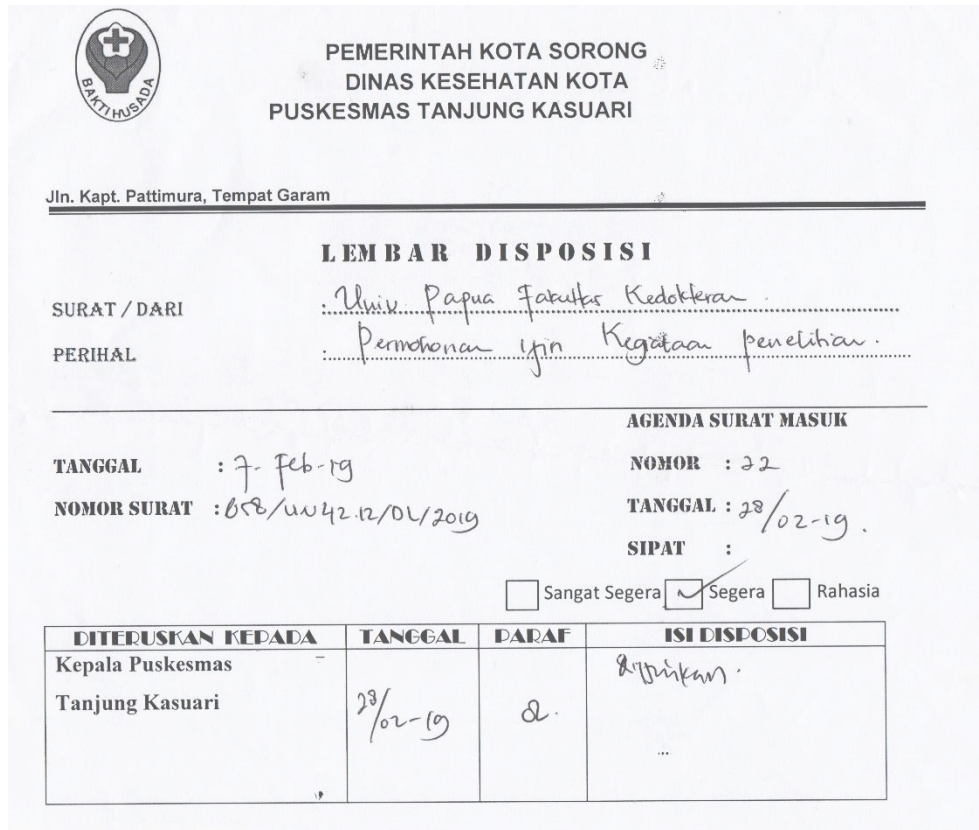 BAKTI HUSADA
PEMERINTAH KOTA SORONG
DINAS KESEHATAN KOTA
PUSKESMAS TANJUNG KASUARI
Jln. Kapt. Pattimura, Tempat Garam
LEMBAR DISPOSISI
SURAT / DARI : Univ. Papua Fakultas Kedokteran.
PERIHAL : Permohonan ijin Kegiataan penelitian.
AGENDA SURAT MASUK
TANGGAL : 7-Feb-19
NOMOR : 22
NOMOR SURAT : /UN42.12/DL/2019
TANGGAL : 28/02-19.
SIPAT :
Sangat Segera Segera Rahasia
DITERUSKAN KEPADA TANGGAL PARAF ISI DISPOSISI
Kepala Puskesmas
Tanjung Kasuari 28/02-19 diijinkan.